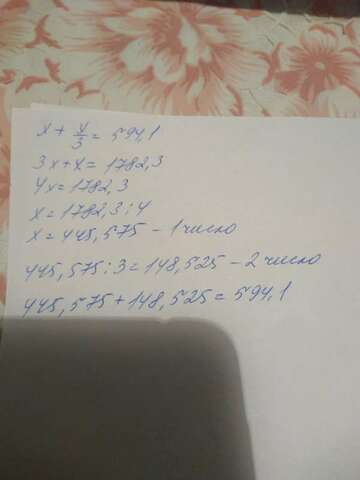 x + x/3 = 594,1
3x+x = 1782,3
4x = 1782,3
x = 1782,3 : 4
x = 445,575 - 1 число
445,575 : 3 = 148,525 - 2 число
445,575 + 148,525 = 594,1